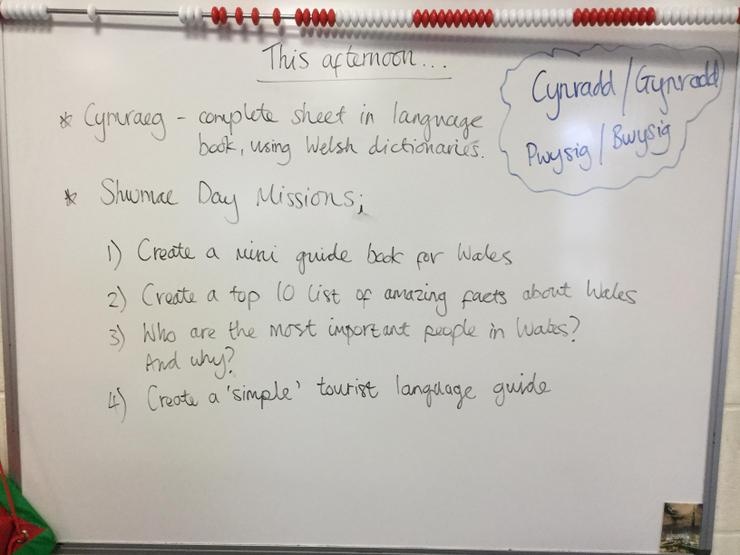 This afternoon...
Cynradd/Gynradd
Pwysig/Bwysig
* Cymraeg - complete sheet in language
book, using Welsh dictionaries.
* Shwmae Day Missions;
1) Create a mini guide book for Wales
2) Create a top 10 list of amazing facts about Wales
3) Who are the most important people in Wales?
And why?
4) Create a 'simple' tourist language guide